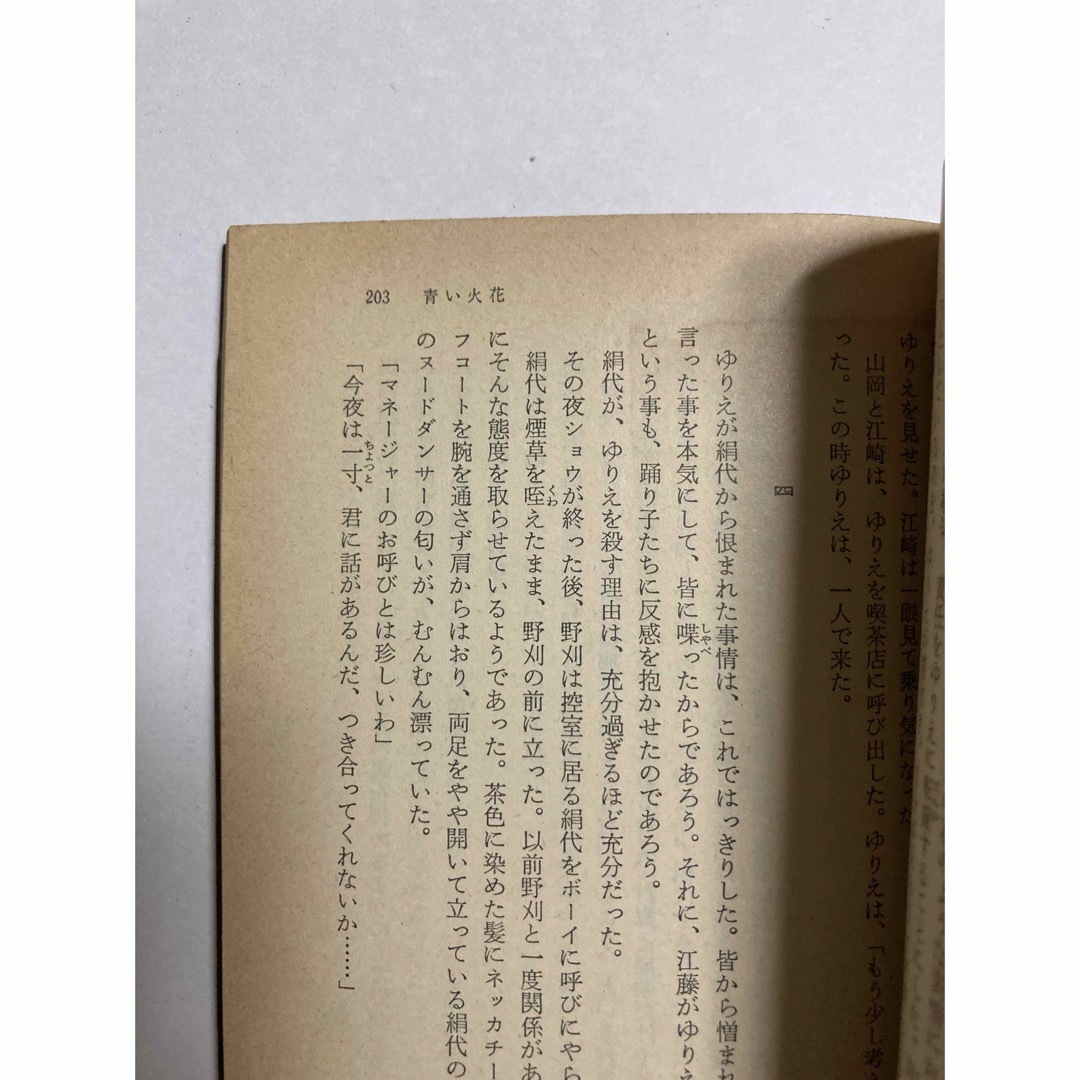 203 青い火花
ゆりえを見せた。江崎は一眼見て乗り気になった
山岡と江崎は、ゆりえを喫茶店に呼び出した。ゆりえは、「もう少し考
った。この時ゆりえは、一人で来た。
四
ゆりえが絹代から恨まれた事情は、これではっきりした。皆から憎まれ
言った事を本気にして、皆に喋ったからであろう。それに、江藤がゆりえ
という事も、踊り子たちに反感を抱かせたのであろう。
絹代が、ゆりえを殺す理由は、充分過ぎるほど充分だった。
その夜ショウが終った後、野刈は控室に居る絹代をボーイに呼びにやら
絹代は煙草を咥えたまま、野刈の前に立った。以前野刈と一度関係があ
にそんな態度を取らせているようであった。茶色に染めた髪にネッカチー
フコートを腕を通さず肩からはおり、両足をやや開いて立っている絹代の
のヌードダンサーの匂いが、むんむん漂っていた。
「マネージャーのお呼びとは珍しいわ」
「今夜は一寸、君に話があるんだ、つき合ってくれないか……」